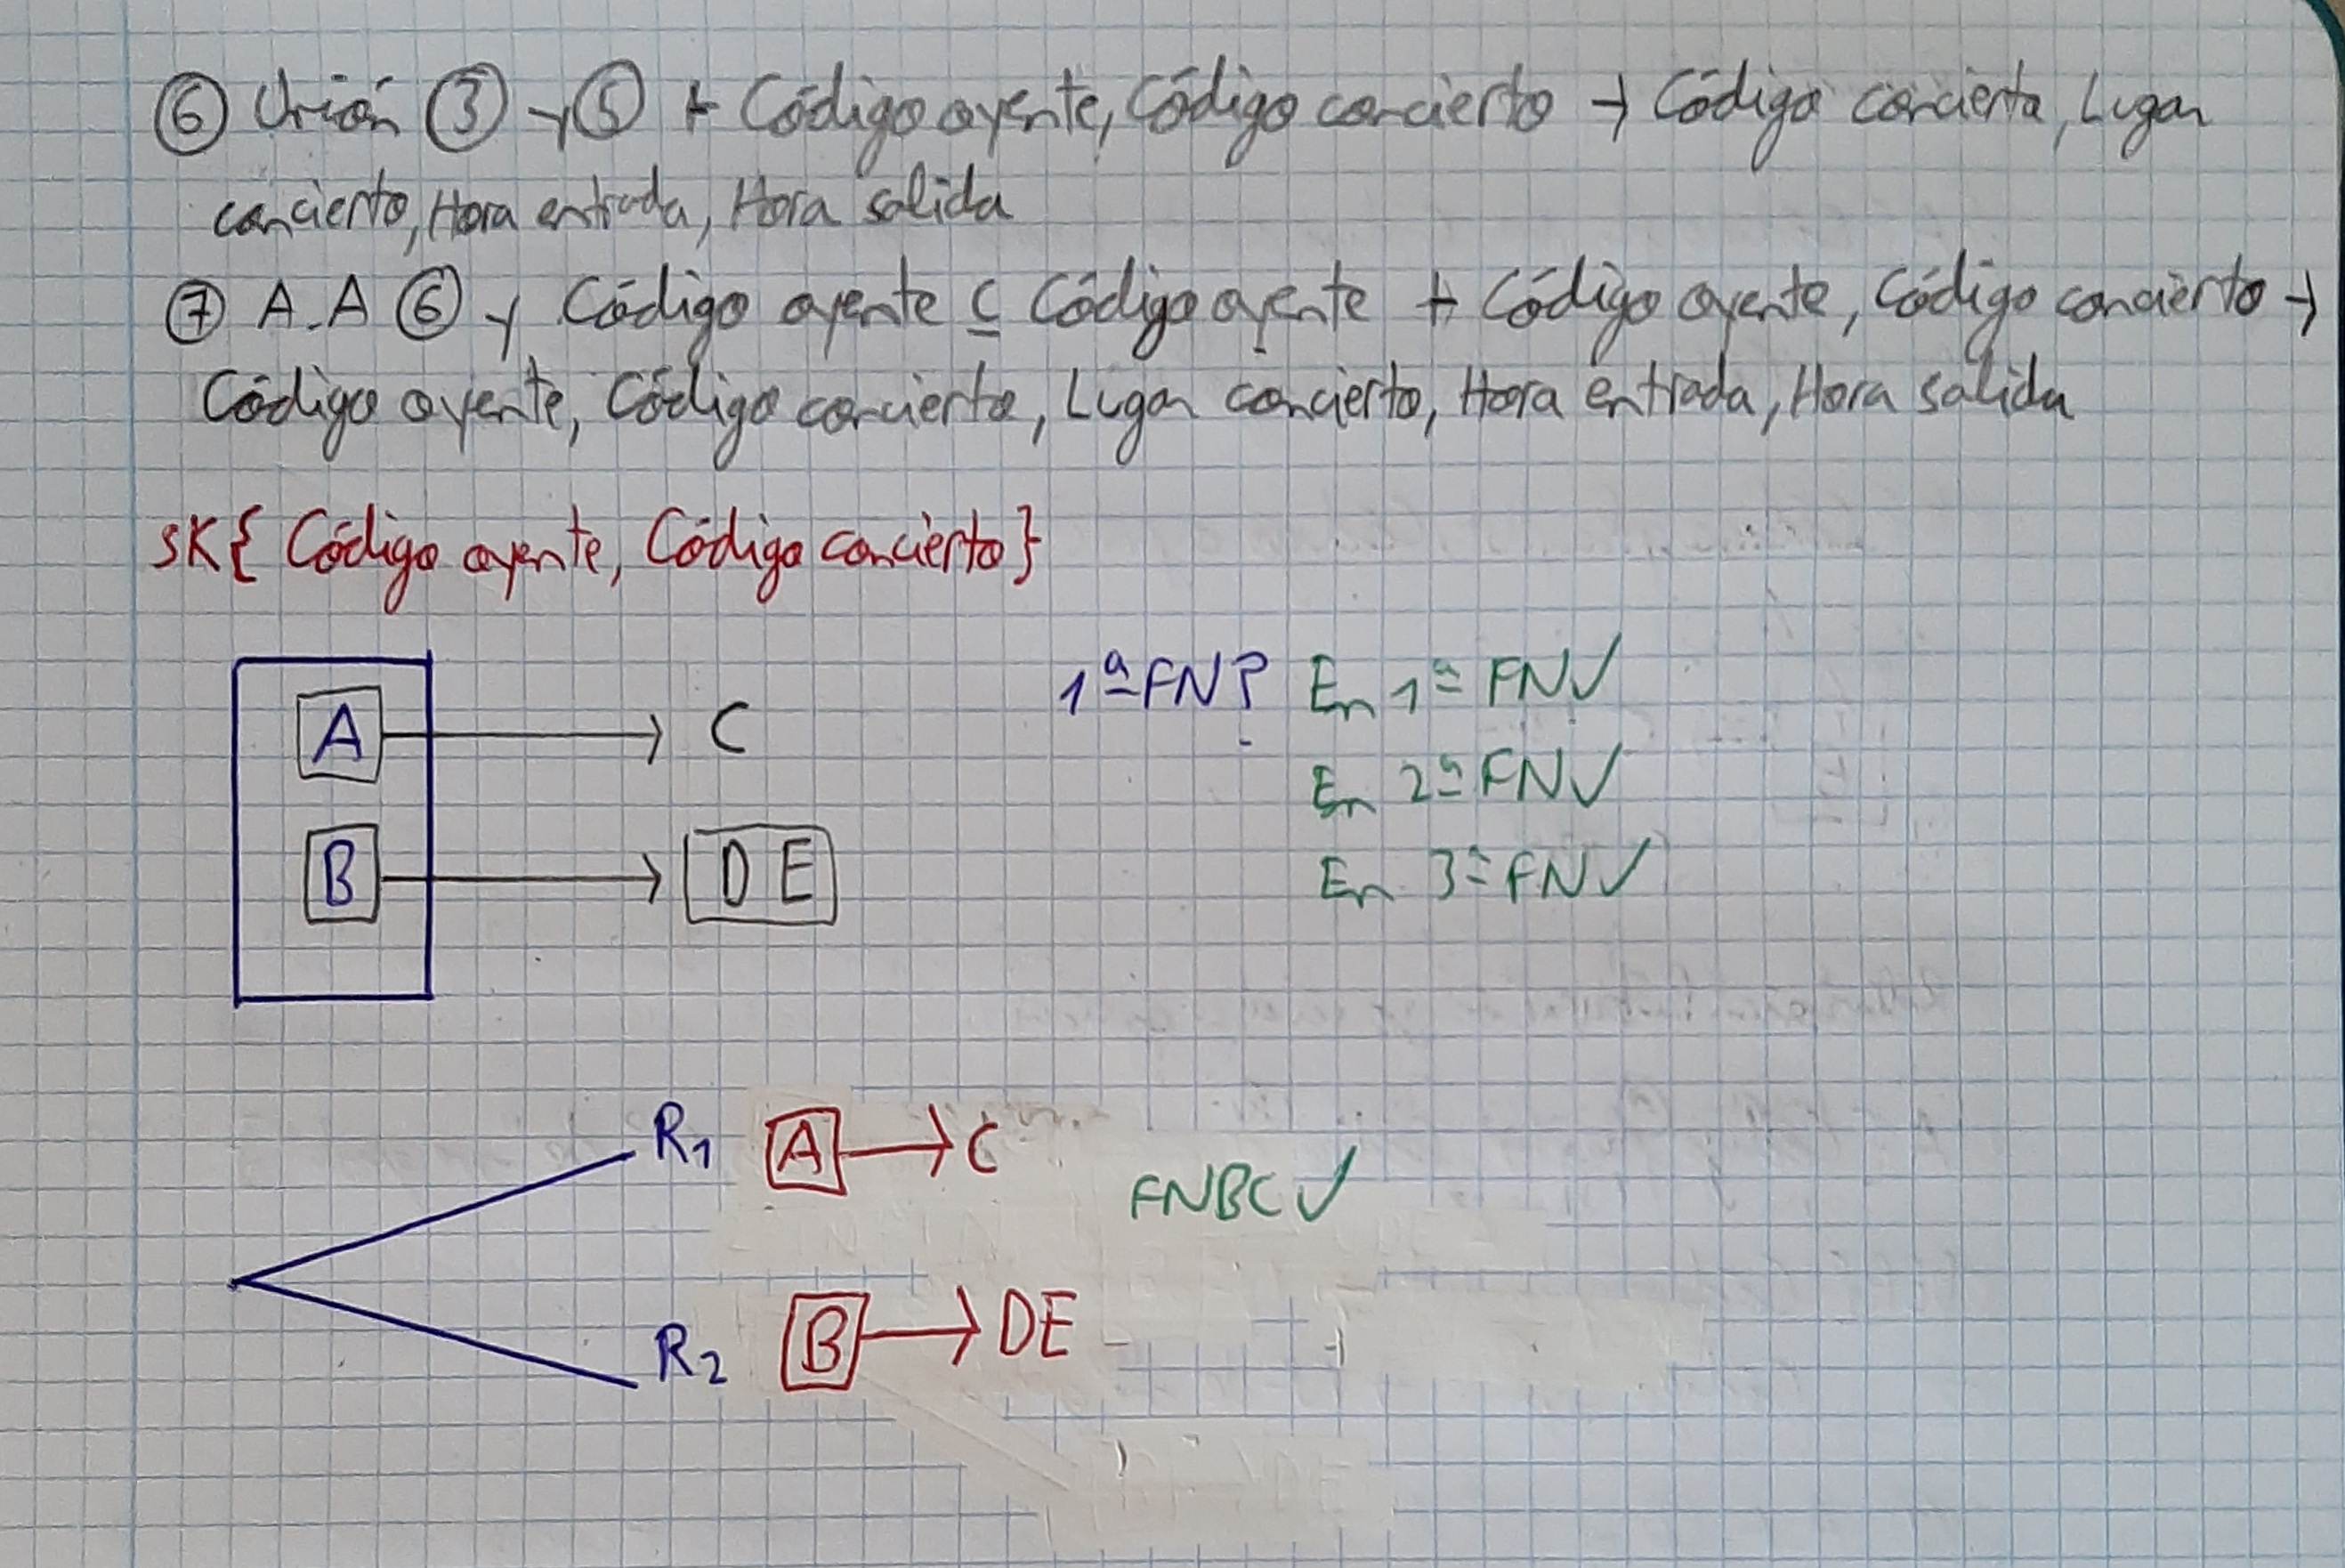 ⑥ Unión ③ y ⑤ ⊢ Código oyente, Código concierto → Código concierto, Lugar
concierto, Hora entrada, Hora salida
⑦ A.A ⑥ y Código oyente ⊆ Código oyente ⊢ Código oyente, Código concierto →
Código oyente, Código concierto, Lugar concierto, Hora entrada, Hora salida
SK{ Código oyente, Código concierto}
1ª FN? En 1ª FN✓
A → C
En 2ª FN✓
B → D E
En 3ª FN✓
R1 A → C
FNBC ✓
R2 B → DE